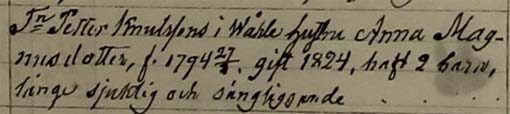 Fn Petter Knutssons i Wåhle hustru Anna Mag-
nusdotter, f. 1794 27/3, gift 1824, haft 2 barn,
länge sjuklig och sängliggande